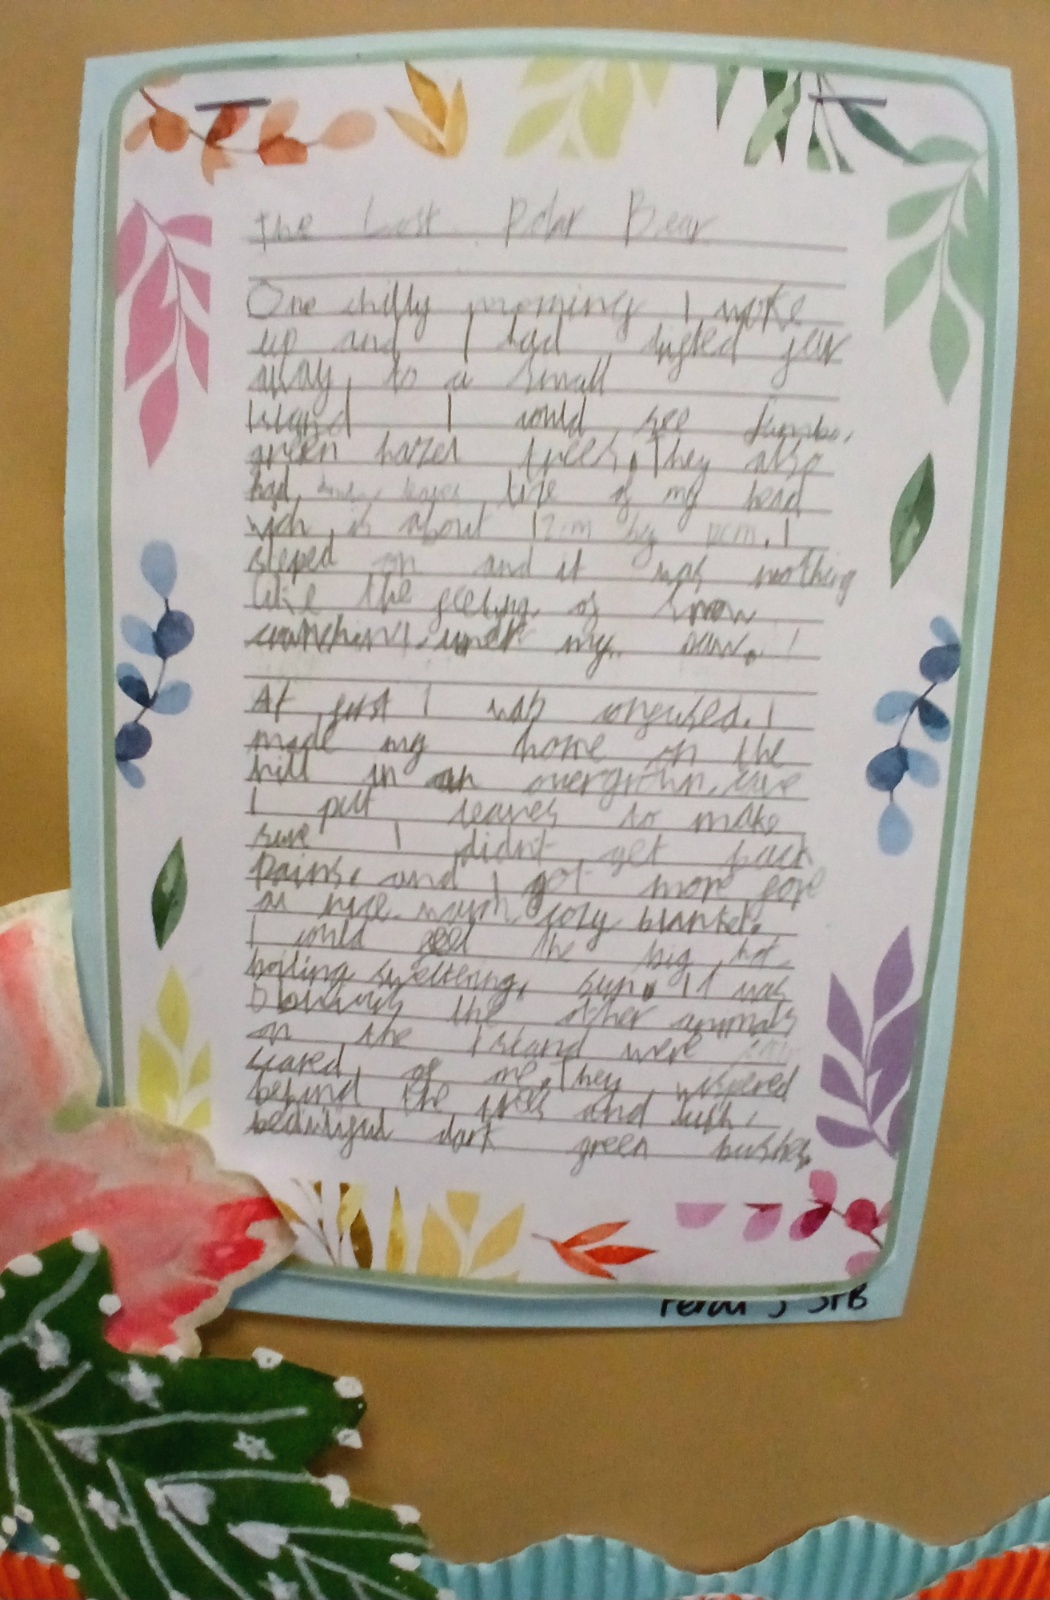 The Lost Polar Bear
One chilly morning I woke
up and I had drifted far
away, to a small
Island I could see Jumbo,
green hazel trees. They also
had leaves like of my head
wich is about 12cm by cm. I
steped on and it was nothing
like the feeling of snow
crunching under my paw.
At first I was confused. I
made my home on the
hill in an overgrown cave
I put leaves to make
sure I didn't get back
Pains, and I got more for
a nice warm cozy blanket.
I could feel the big hot
boiling sweltering, sun. It was
Obviously the other animals
on the Island were
scared of me. They wispered
behind the trees and lush,
beautiful dark green bushes.